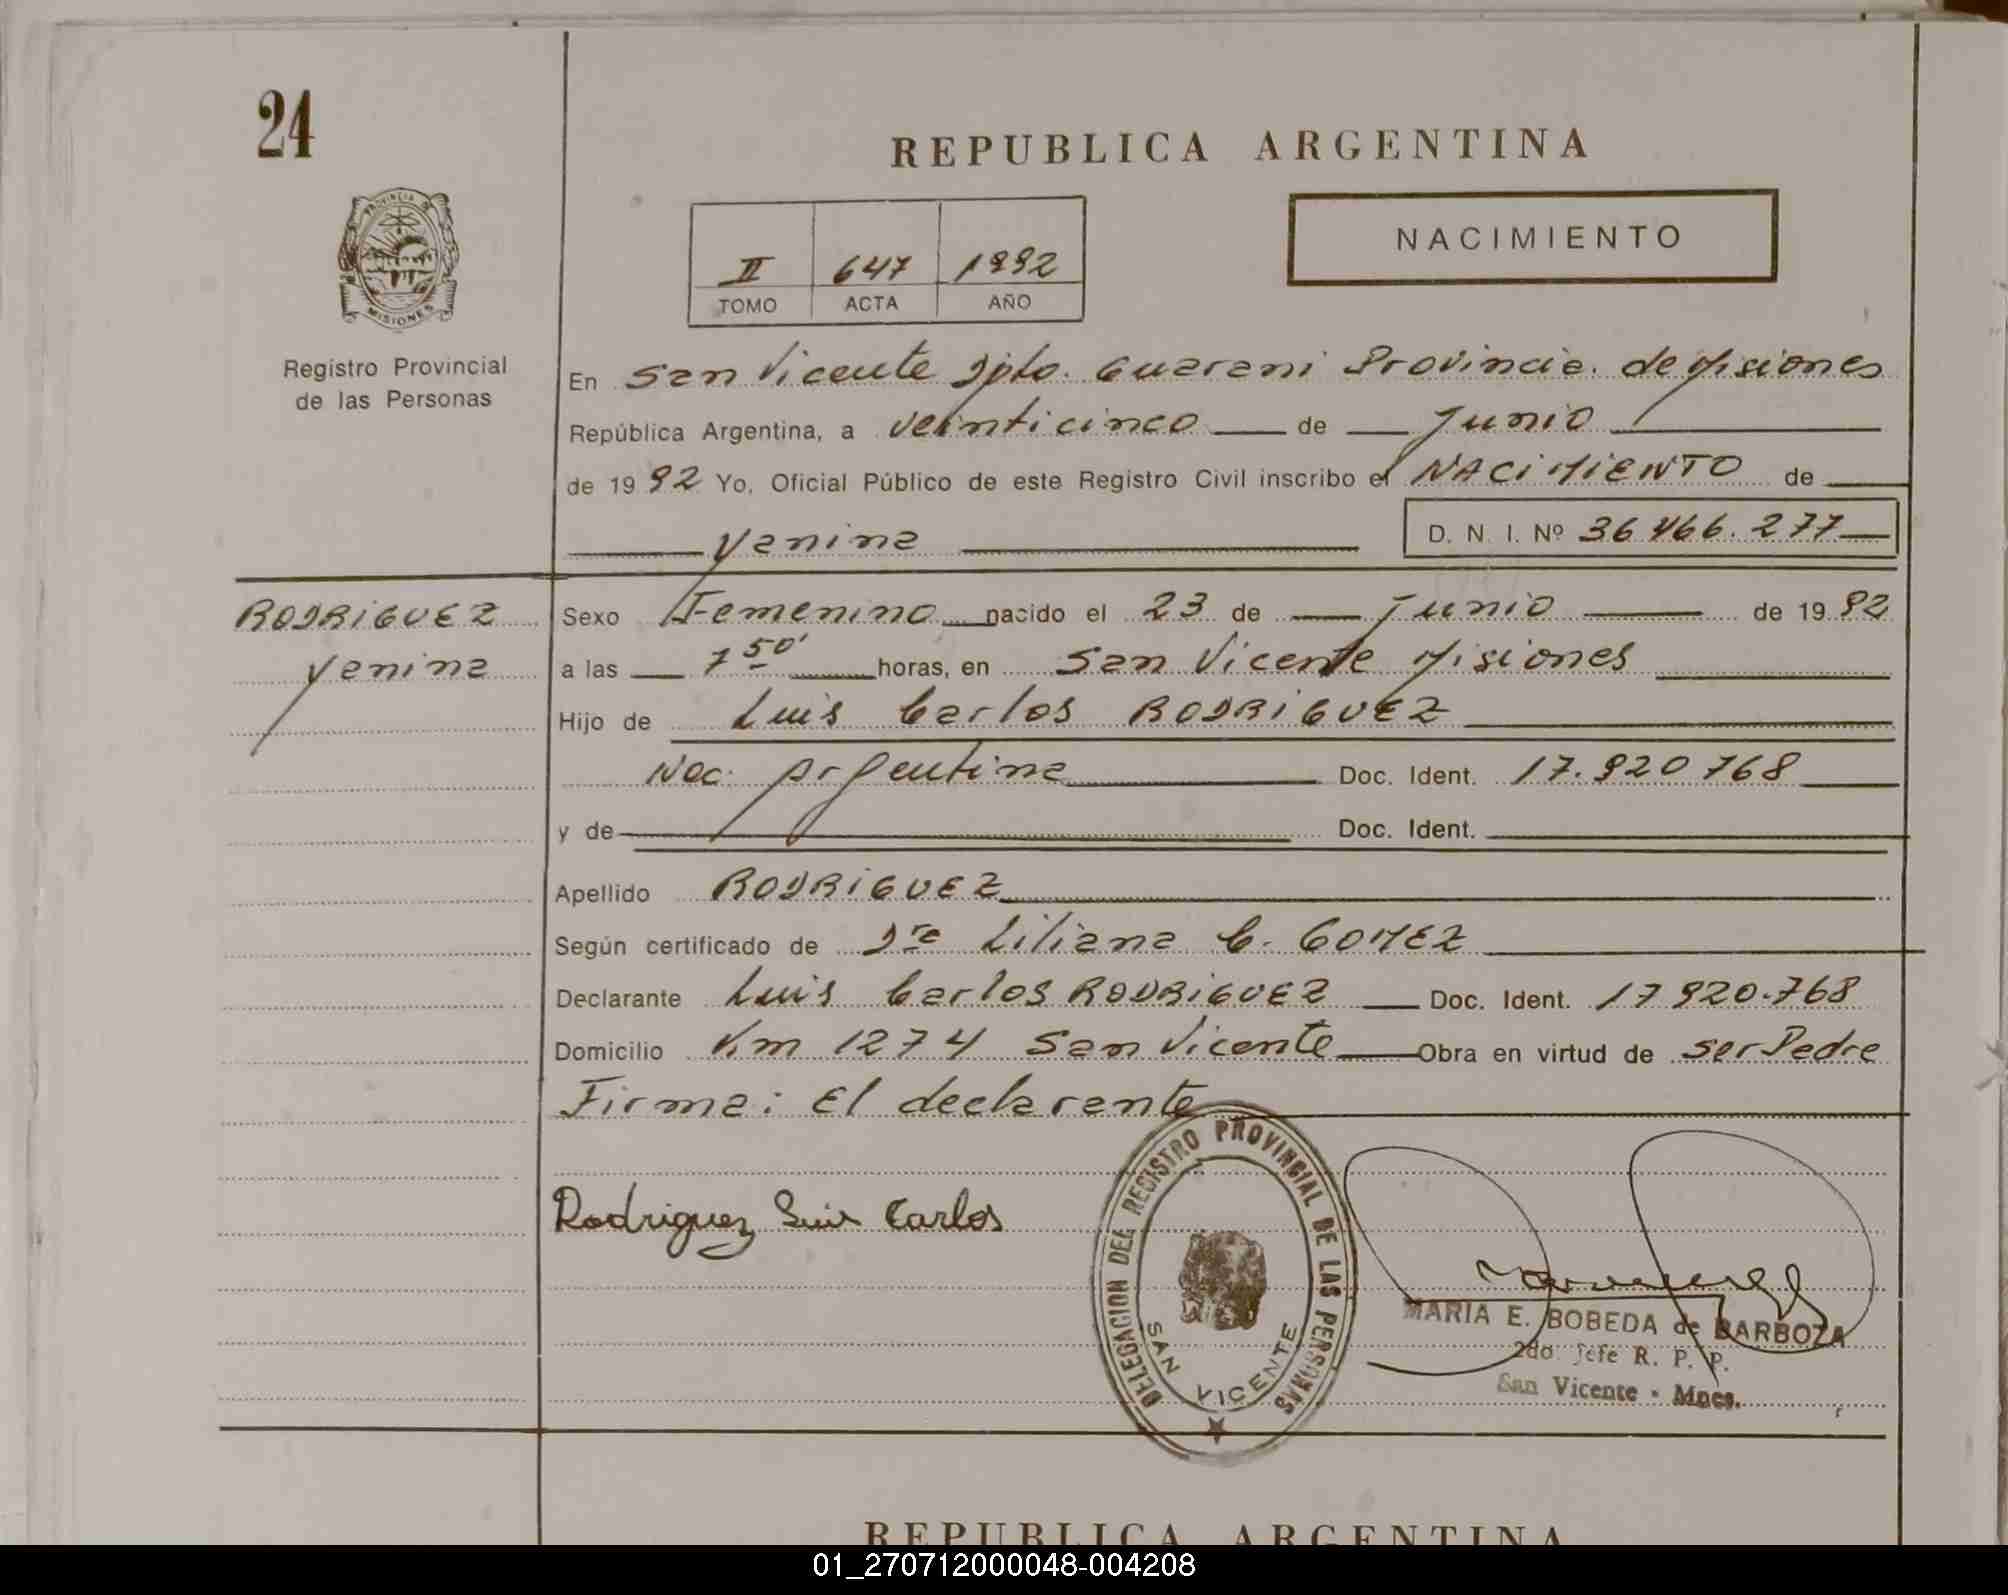 24
REPUBLICA ARGENTINA
PROVINCIA DE
MISIONES
NACIMIENTO
II 647 1992
TOMO ACTA AÑO
Registro Provincial
de las Personas
En San Vicente Dpto. Guarani Provincia. de Misiones
República Argentina, a veinticinco de Junio
de 1992 Yo, Oficial Público de este Registro Civil inscribo el NACIMIENTO de
Yanina D. N. I. Nº 36 466.277
RODRIGUEZ
Yanina
Sexo Femenino nacido el 23 de Junio de 1992
a las 7 50' horas, en San Vicente Misiones
Hijo de Luis Carlos RODRIGUEZ
Nac: Argentina Doc. Ident. 17.920 768
y de Doc. Ident.
Apellido RODRIGUEZ
Según certificado de Dra Liliana C. GOMEZ
Declarante Luis Carlos RODRIGUEZ Doc. Ident. 17 920.768
Domicilio Km 1274 San Vicente Obra en virtud de ser Padre
Firma: El declarante
Rodriguez Luis Carlos
DELEGACION DEL REGISTRO PROVINCIAL DE LAS PERSONAS
SAN VICENTE
MARIA E. BOBEDA de BARBOZA
2do. Jefe R. P. P.
San Vicente - Mnes.
REPUBLICA ARGENTINA
01_270712000048-004208